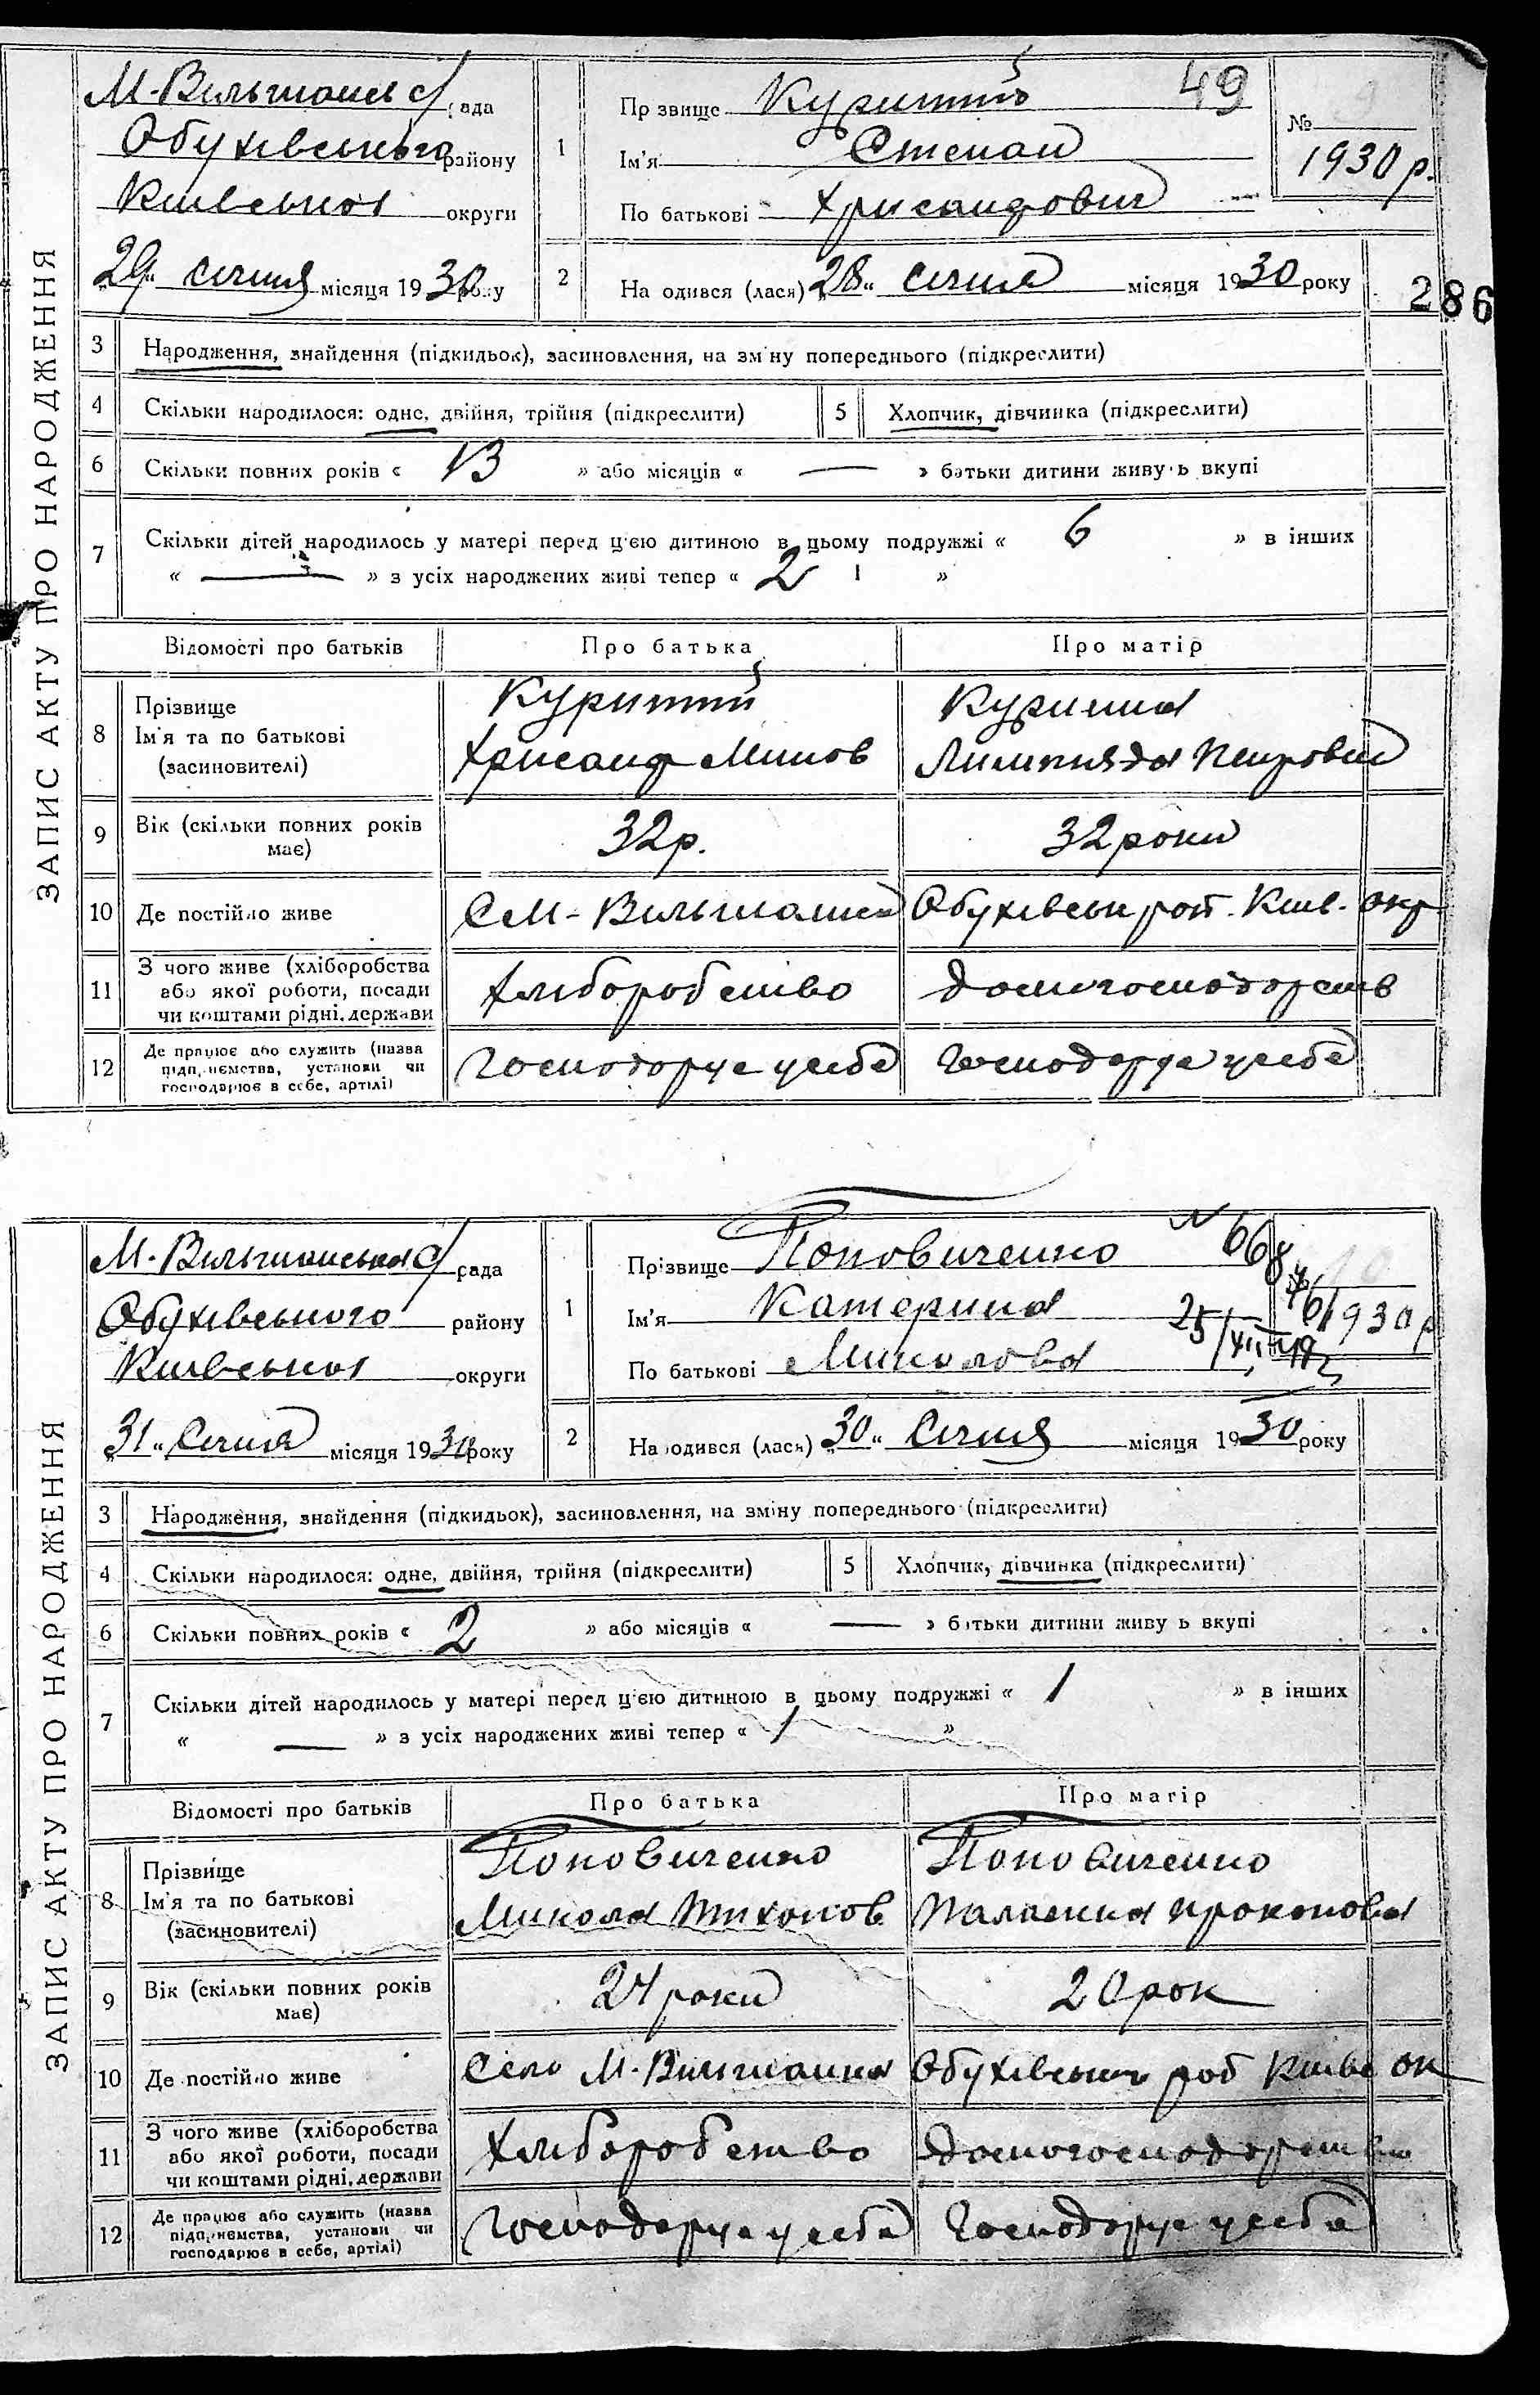 ЗАПИС АКТУ ПРО НАРОДЖЕННЯ
М-Вільшанськ с/рада
Обухівського району
Київської округи
29 січня місяця 1930 року
1
Прізвище 49
Ім'я Степан
По батькові Хрисанфович
№ 9
1930 р.
2
Народився (лася) „28“ січня місяця 1930 року
286
3 Народження, знайдення (підкидьок), засиновлення, на зміну попереднього (підкреслити)
4 Скільки народилося: одне, двійня, трійня (підкреслити)
5 Хлопчик, дівчинка (підкреслити)
6 Скільки повних років « 13 » або місяців « — » батьки дитини живуть вкупі
7 Скільки дітей народилось у матері перед цією дитиною в цьому подружжі « 6 » в інших
« — » з усіх народжених живі тепер « 2 »
Відомості про батьків
Про батька
Про матір
8 Прізвище
Ім'я та по батькові
(засиновителі)
Хрисанф Минов
Петровна
9 Вік (скільки повних років
має)
32 р.
32 роки
10 Де постійно живе
С М-Вільшанка Обухівськ рай. Київ. окр
11 З чого живе (хліборобства
або якої роботи, посади
чи коштами рідні, держави
Хліборобство
Домогосподарств
12 Де працює або служить (назва
підприємства, установи чи
господарює в себе, артілі)
Господарує у себе
Господарує у себе
ЗАПИС АКТУ ПРО НАРОДЖЕННЯ
М-Вільшанська с/рада
Обухівського району
Київської округи
„31“ Січня місяця 1930 року
1
Прізвище Поповиченко
Ім'я Катерина
По батькові Миколова
10
1930 р
25/XII
2
Народився (лася) „30“ Січня місяця 1930 року
3 Народження, знайдення (підкидьок), засиновлення, на зміну попереднього (підкреслити)
4 Скільки народилося: одне, двійня, трійня (підкреслити)
5 Хлопчик, дівчинка (підкреслити)
6 Скільки повних років « 2 » або місяців « — » батьки дитини живуть вкупі
7 Скільки дітей народилось у матері перед цією дитиною в цьому подружжі « 1 » в інших
« — » з усіх народжених живі тепер « 1 »
Відомості про батьків
Про батька
Про матір
8 Прізвище
Ім'я та по батькові
(засиновителі)
Поповиченко
Микола Тихонов
Поповиченко
Палажка Прокопова
9 Вік (скільки повних років
має)
24 роки
20 рок
10 Де постійно живе
Село М-Вільшанка Обухівськ рай Київс ок
11 З чого живе (хліборобства
або якої роботи, посади
чи коштами рідні, держави
Хліборобство
Домогосподарство
12 Де працює або служить (назва
підприємства, установи чи
господарює в себе, артілі)
Господарує у себе
Господарує у себе